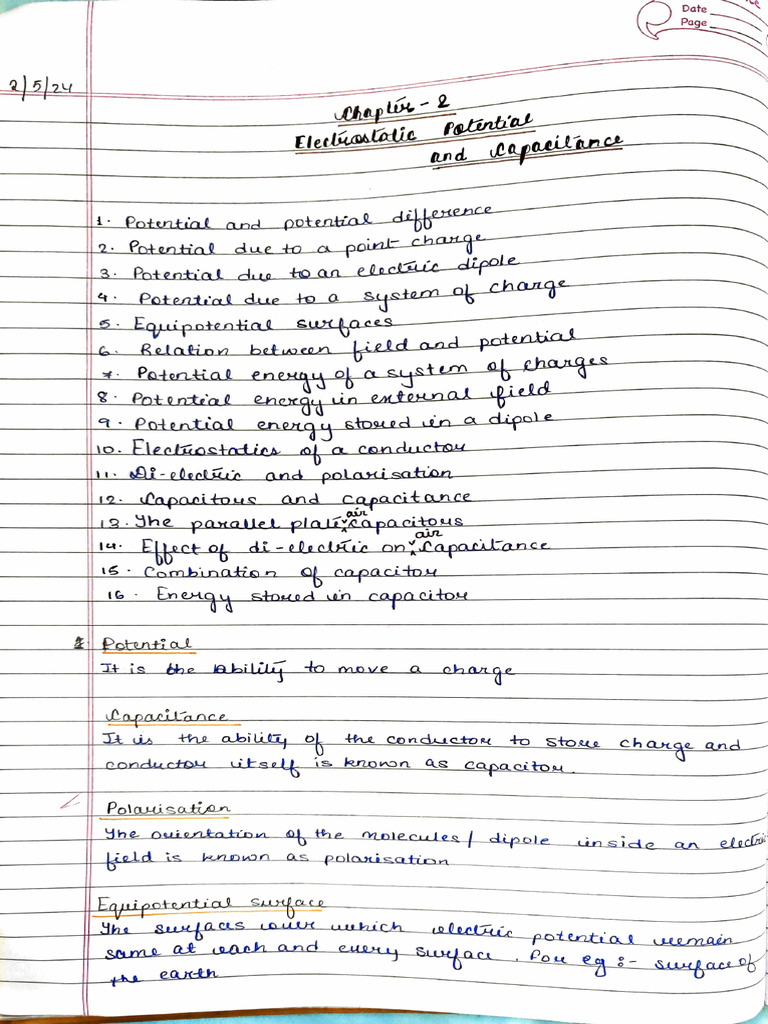 Date
Page
2/5/24
Chapter - 2
Electrostatic Potential
and Capacitance
1. Potential and potential difference
2. Potential due to a point charge
3. Potential due to an electric dipole
4. Potential due to a system of charge
5. Equipotential surfaces
6. Relation between field and potential
7. Potential energy of a system of charges
8. Potential energy in external field
9. Potential energy stored in a dipole
10. Electrostatics of a conductor
11. Di-electric and polarisation
12. Capacitors and capacitance
13. The parallel plate air capacitors
14. Effect of di-electric on air capacitance
15. Combination of capacitor
16. Energy stored in capacitor
Potential
It is the ability to move a charge
Capacitance
It is the ability of the conductor to store charge and
conductor itself is known as capacitor.
Polarisation
The orientation of the molecules / dipole inside an electric
field is known as polarisation
Equipotential surface
The surfaces over which electric potential remain
same at each and every surface. For eg :- surface of
the earth